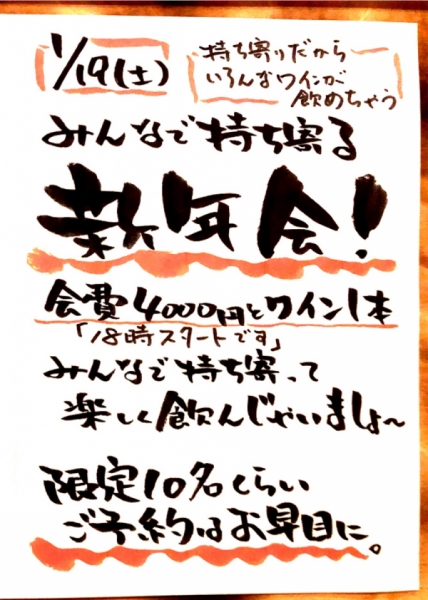 1/19(土)
持ち寄りだから
いろんなワインが
飲めちゃう
みんなで持ち寄る
新年会!
会費4000円とワイン1本
「18時スタートです」
みんなで持ち寄って
楽しく飲んじゃいましょ〜
限定10名くらい
ご予約はお早目に。